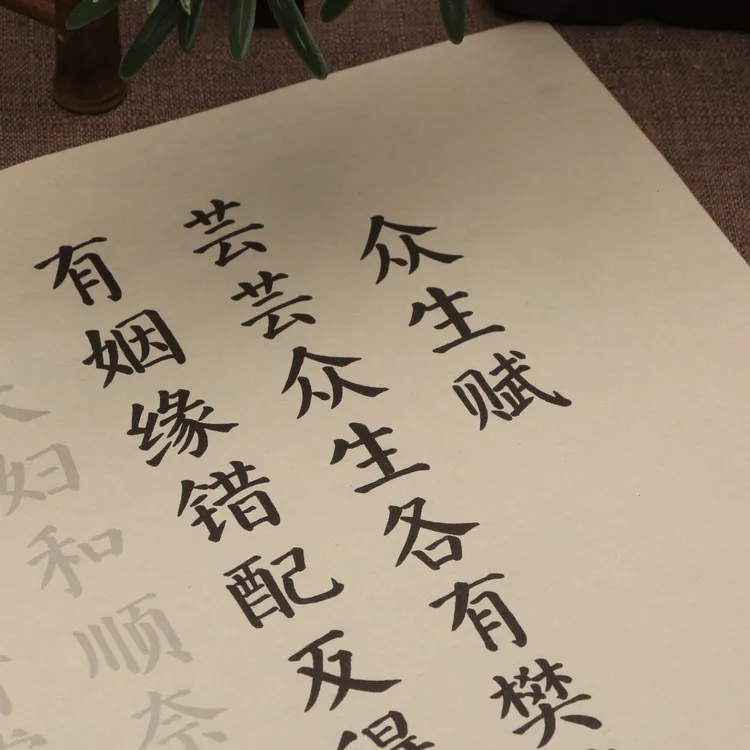 众生赋
芸芸众生各有樊
有姻缘错配反得
妇和顺奈